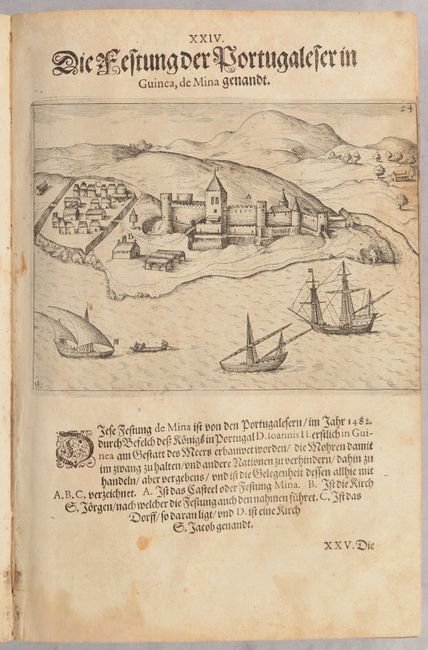 XXIV.
Die Festung der Portugaleser in
Guinea, de Mina genandt.
54
DIese Festung de Mina ist von den Portugalesern / im Jahr 1482.
durch Befelch deß Königs in Portugal D. Ioannis II. erstlich in Gui-
nea am Gestatt des Meers erbauwet worden / die Mohren damit
im zwang zu halten / vnd andere Nationen zu verhindern / dahin zu
handeln / aber vergebens / vnd ist die Gelegenheit dessen allhie mit
A. B. C. verzeichnet. A. Ist das Casteel oder Festung Mina. B. Ist die Kirch
S. Jörgen / nach welcher die Festung auch den nahmen führet. C. Ist das
Dorff / so daran ligt / vnd D. ist eine Kirch
S. Jacob genandt.
XXV. Die